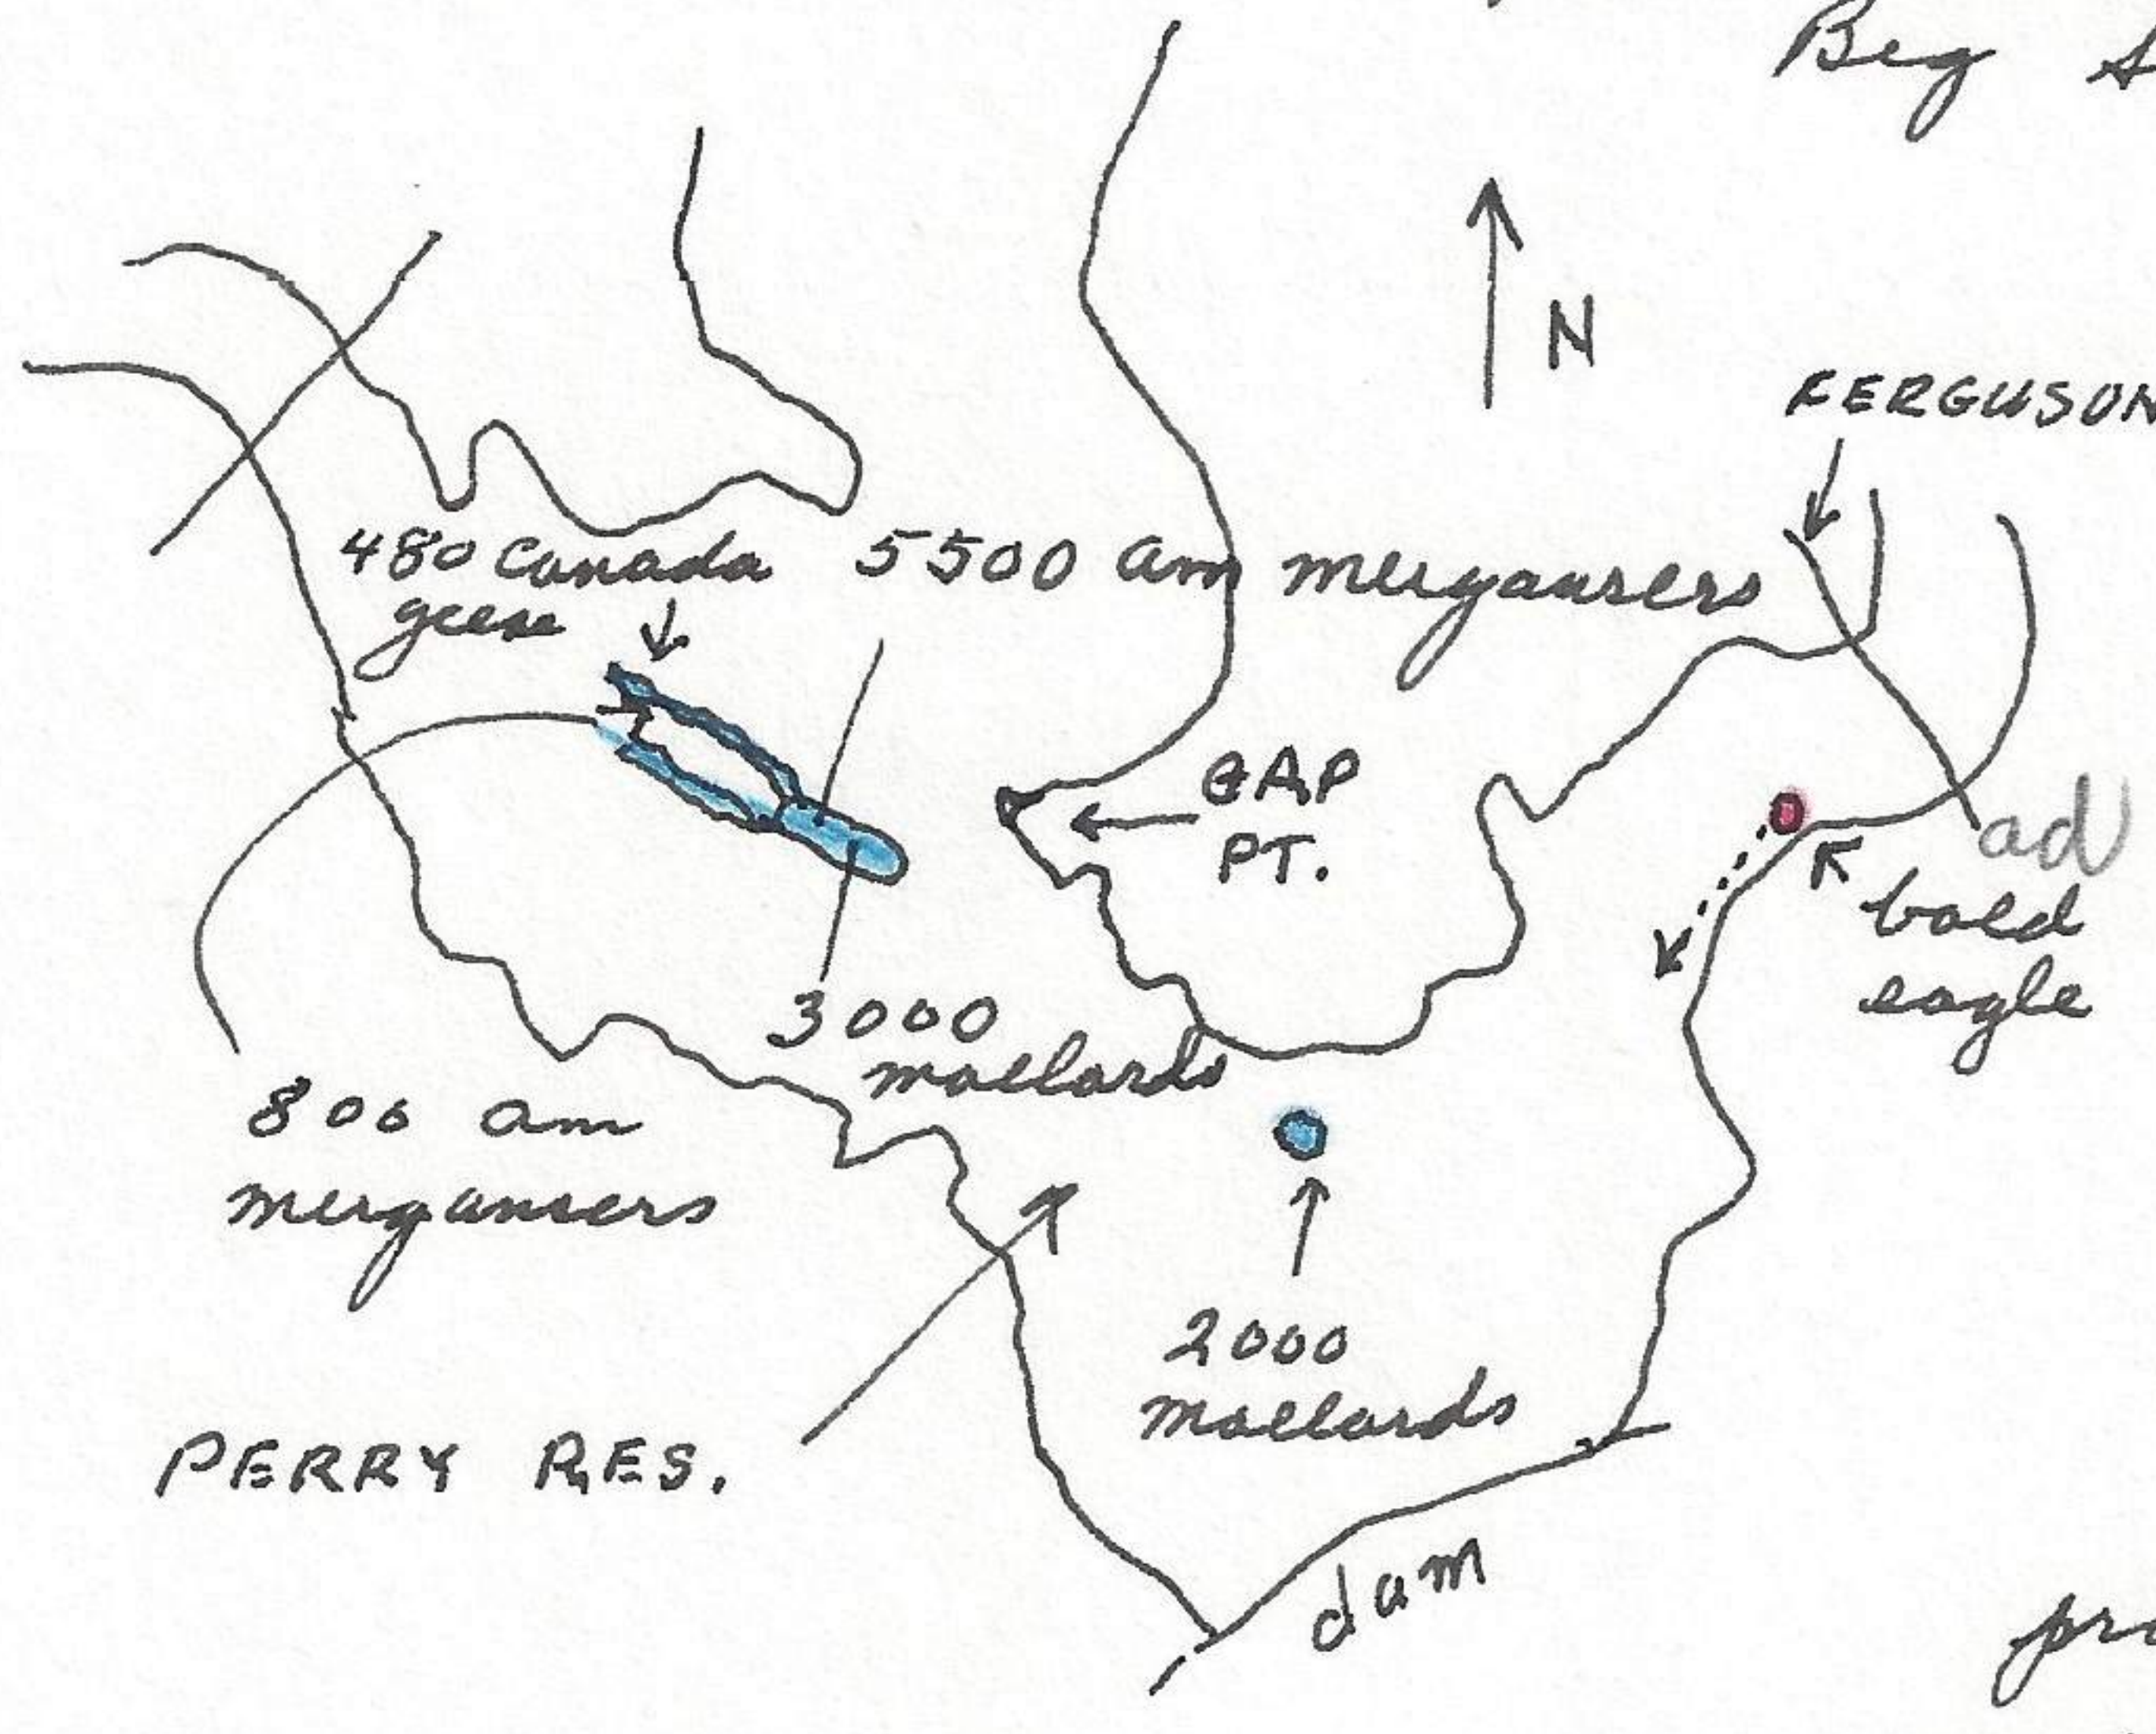 Big
N
FERGUSON
480 Canada
geese
5500 am mergansers
GAP
PT.
ad
bald
eagle
3000
mallards
800 am
mergansers
2000
mallards
PERRY RES.
dam